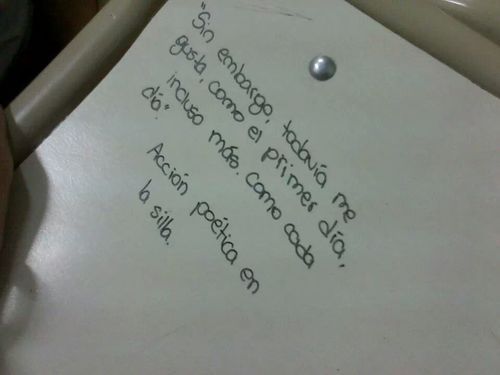 "Sin embargo, todavía me
gusta, como el primer día,
incluso más. como cada
día".
Acción poética en
la silla.